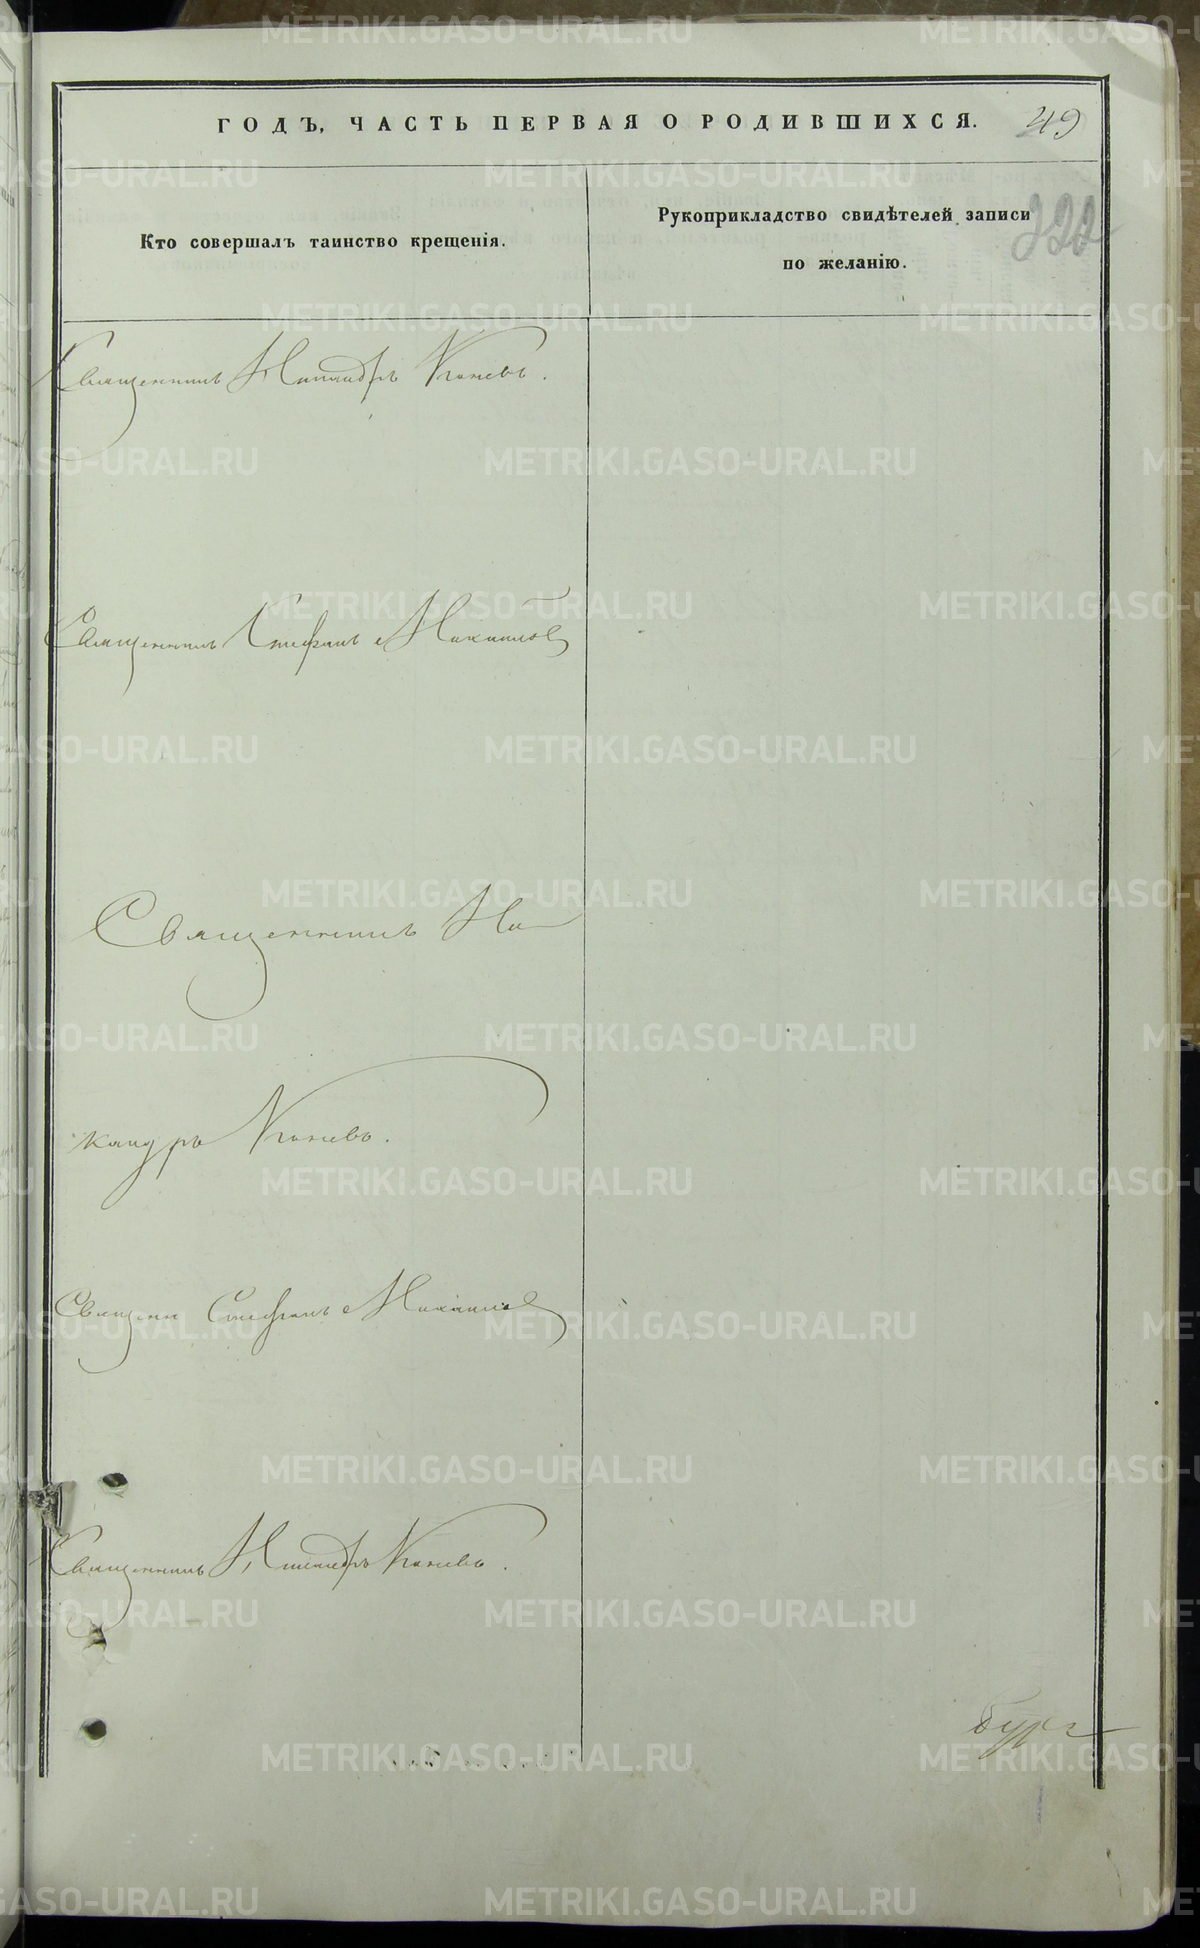 ГОДЪ, ЧАСТЬ ПЕРВАЯ О РОДИВШИХСЯ. 49
Кто совершалъ таинство крещенія.
Рукоприкладство свидѣтелей записи
по желанію.
Священникъ Никандръ Коневъ.
Священникъ Стефанъ Михайлов
Священникъ Ни-
кандръ Коневъ.
Священ Стефанъ Михайлов
Священникъ Никандръ Коневъ.
бург
METRIKI.GASO-URAL.RU